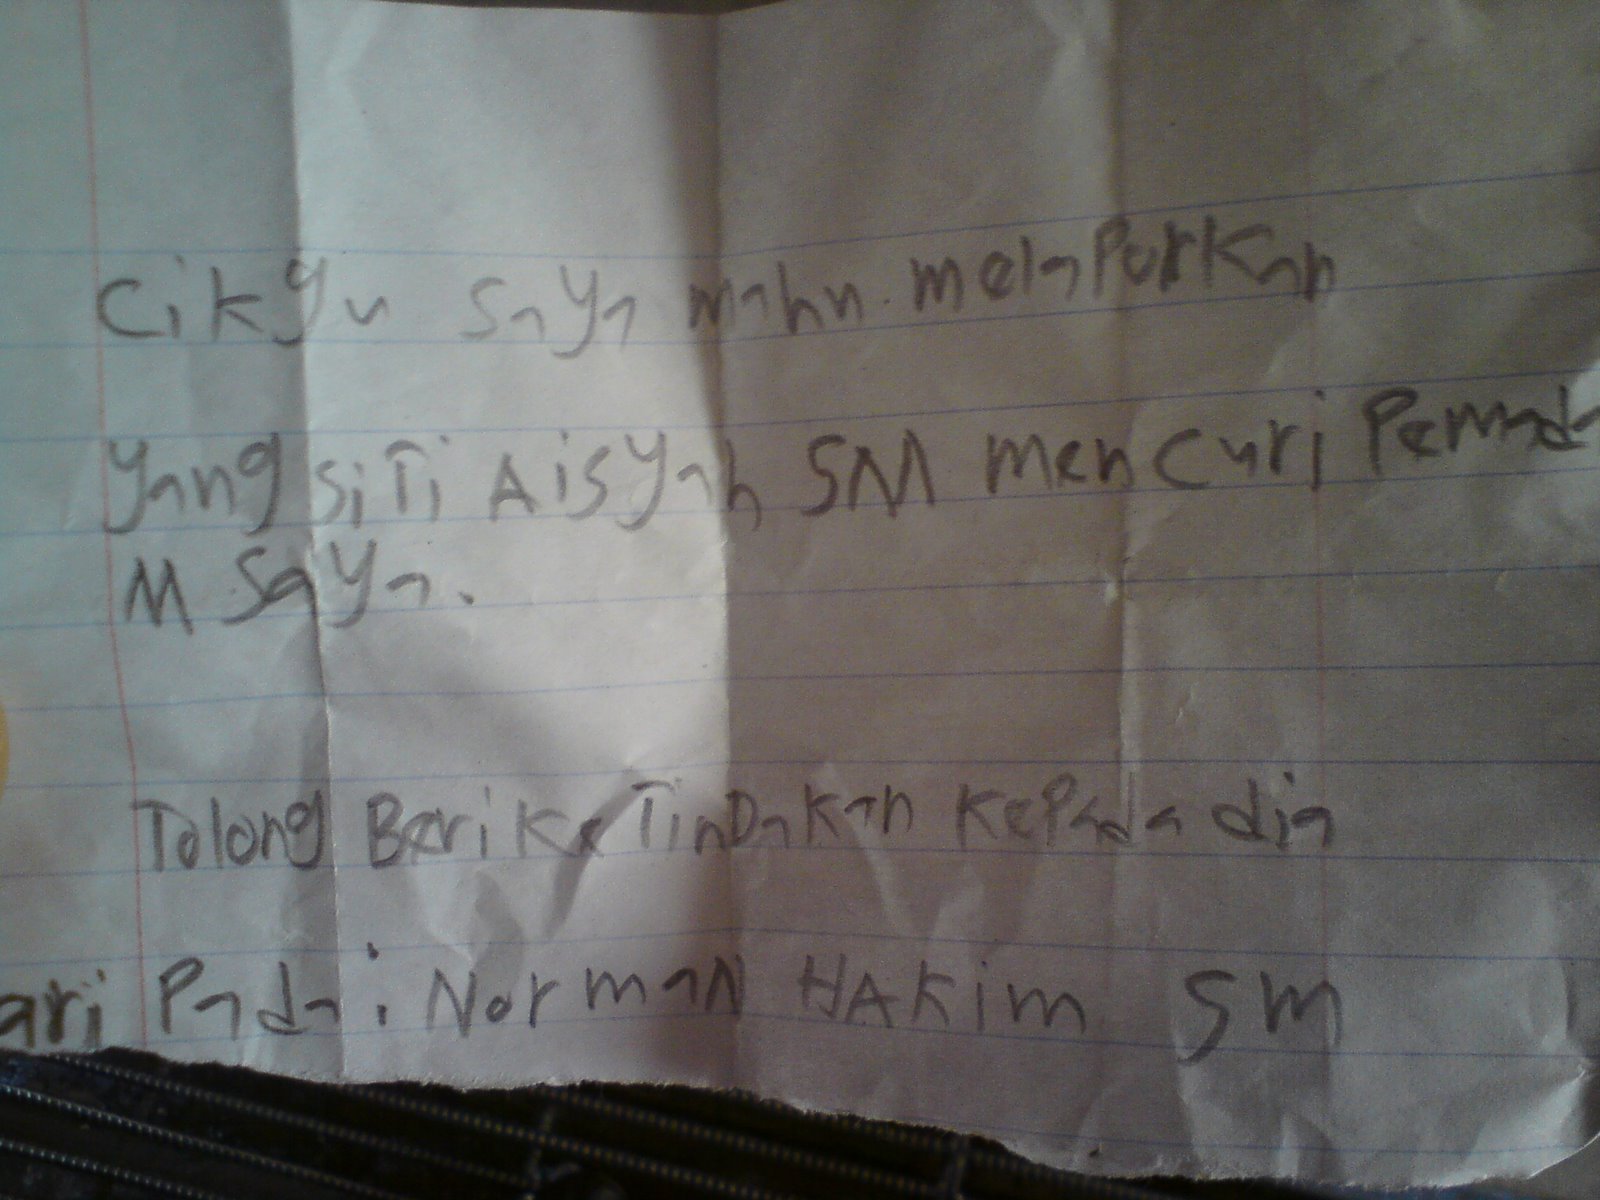 Cikgu saya mahu melaporkan
yang siti Aisyah SM mencuri Pemada
M saya.
Tolong Berike TinDakan kepada dia
ari Pada: Norman HAKim SM